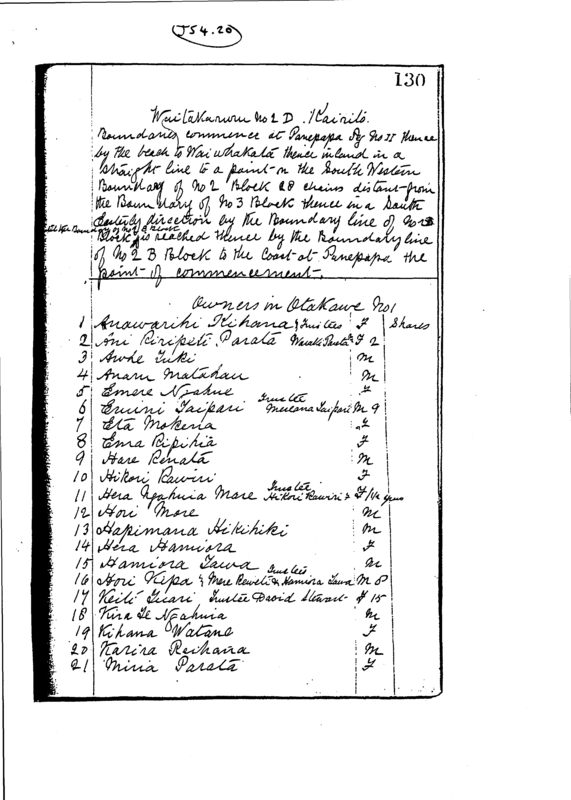 J54.20
130
Waitakaruru No 2 D. Kairito.
Boundaries commence at Panepapa Pg No II thence
by the beach to Waiwhakata thence inland in a
straight line to a point on the South Western
Boundary of No 2 Block 28 chains distant from
the Boundary of No 3 Block thence in a South
Easterly direction by the Boundary line of No 2B
till the Boundary of No Block
Block is reached thence by the Boundary line
of No 2 B Block to the Coast at Panepapa the
point of commencement.
Owners in Otakawe No 1
1 Anawariki Kihana & Trustees F Shares
2 Ani Piripeti Parata Parata F 2
3 Awhe Tuki M
4 Anaru Matahau M
5 Emere Ngahue F
6 Eruini Taipari Trustee Mereana Taipari M 9
7 Eta Mokena F
8 Ema Ripihia F
9 Hare Renata M
10 Hikori Rawiri F
11 Hera Ngahuia More Trustee Hikori Rawiri F 14 years
12 Hori More M
13 Hapimana Hikihiki M
14 Hera Hamiora F
15 Hamiora Tawa M
16 Hori Kepa & Mere Reweti & Hamiora Tawa Trustees M 8
17 Keiti Tuari Trustee David Stewart F 15
18 Kira Te Ngahuia M
19 Kihana Watane F
20 Karira Reihana M
21 Miria Parata F